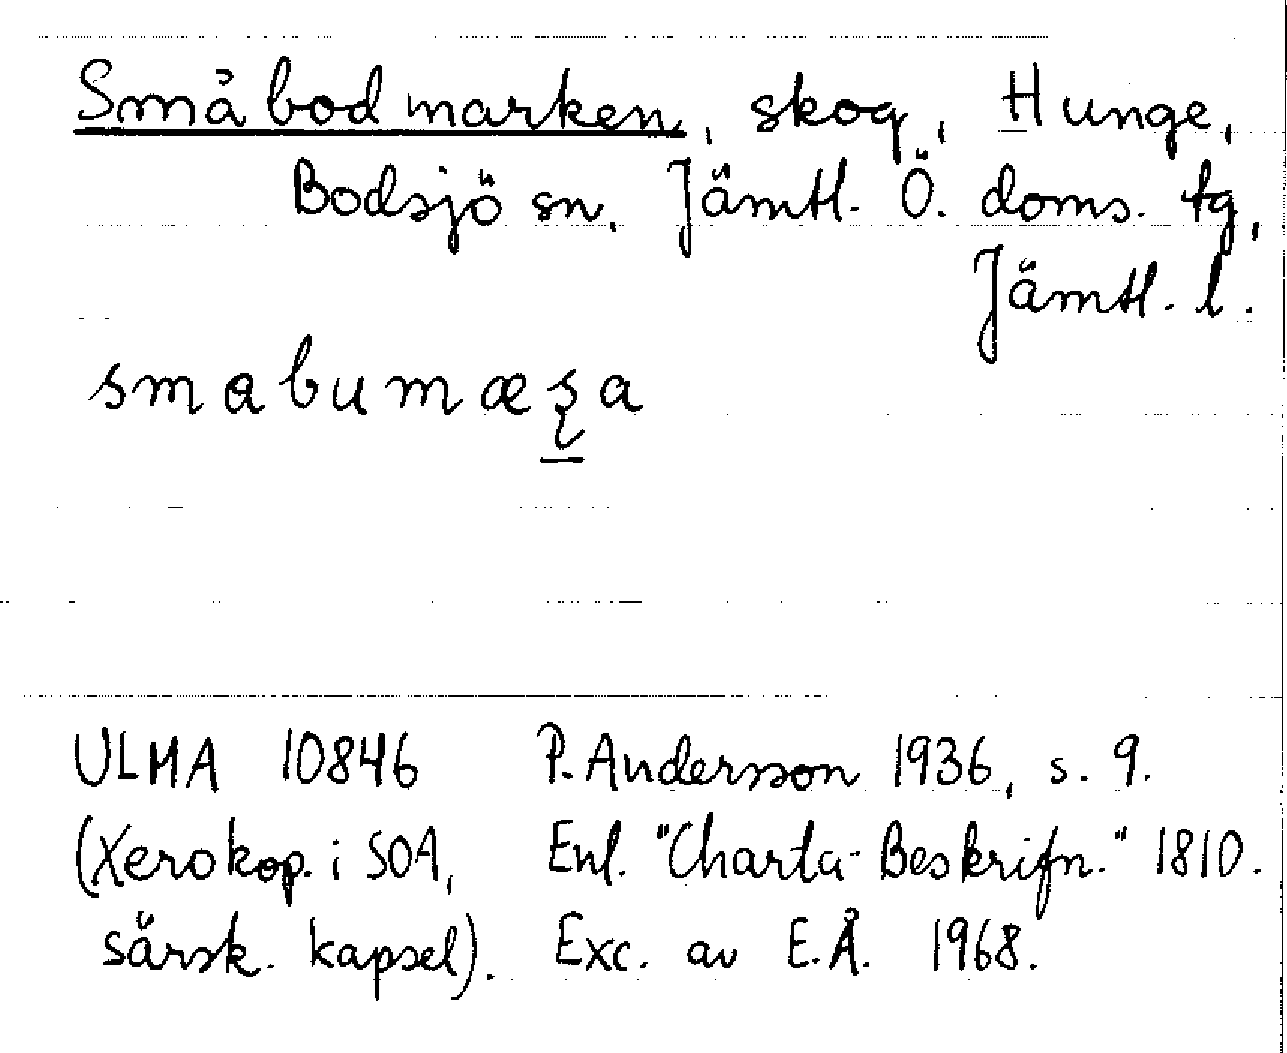 Småbodmarken, skog, Hunge,
Bodsjö sn, Jämtl. Ö. doms. tg,
Jämtl. l.
ULMA 10846 P. Andersson 1936, s. 9.
(Xerokop. i SOA, Enl. "Charta-Beskrifn." 1810.
särsk. kapsel). Exc. av E.Å. 1968.